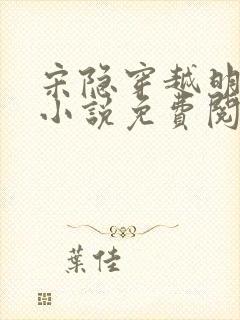 宋隐穿越明
小説免費閱
葉佳